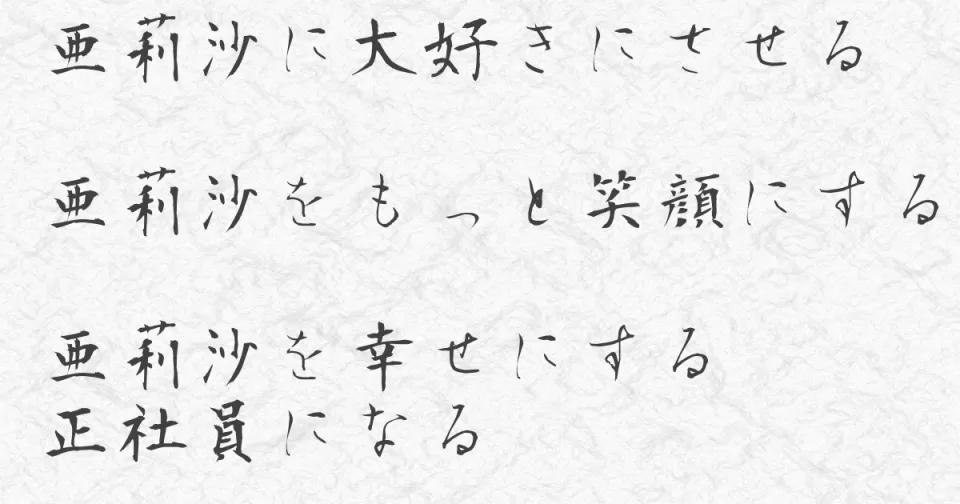 亜莉沙に大好きにさせる
亜莉沙をもっと笑顔にする
亜莉沙を幸せにする
正社員になる